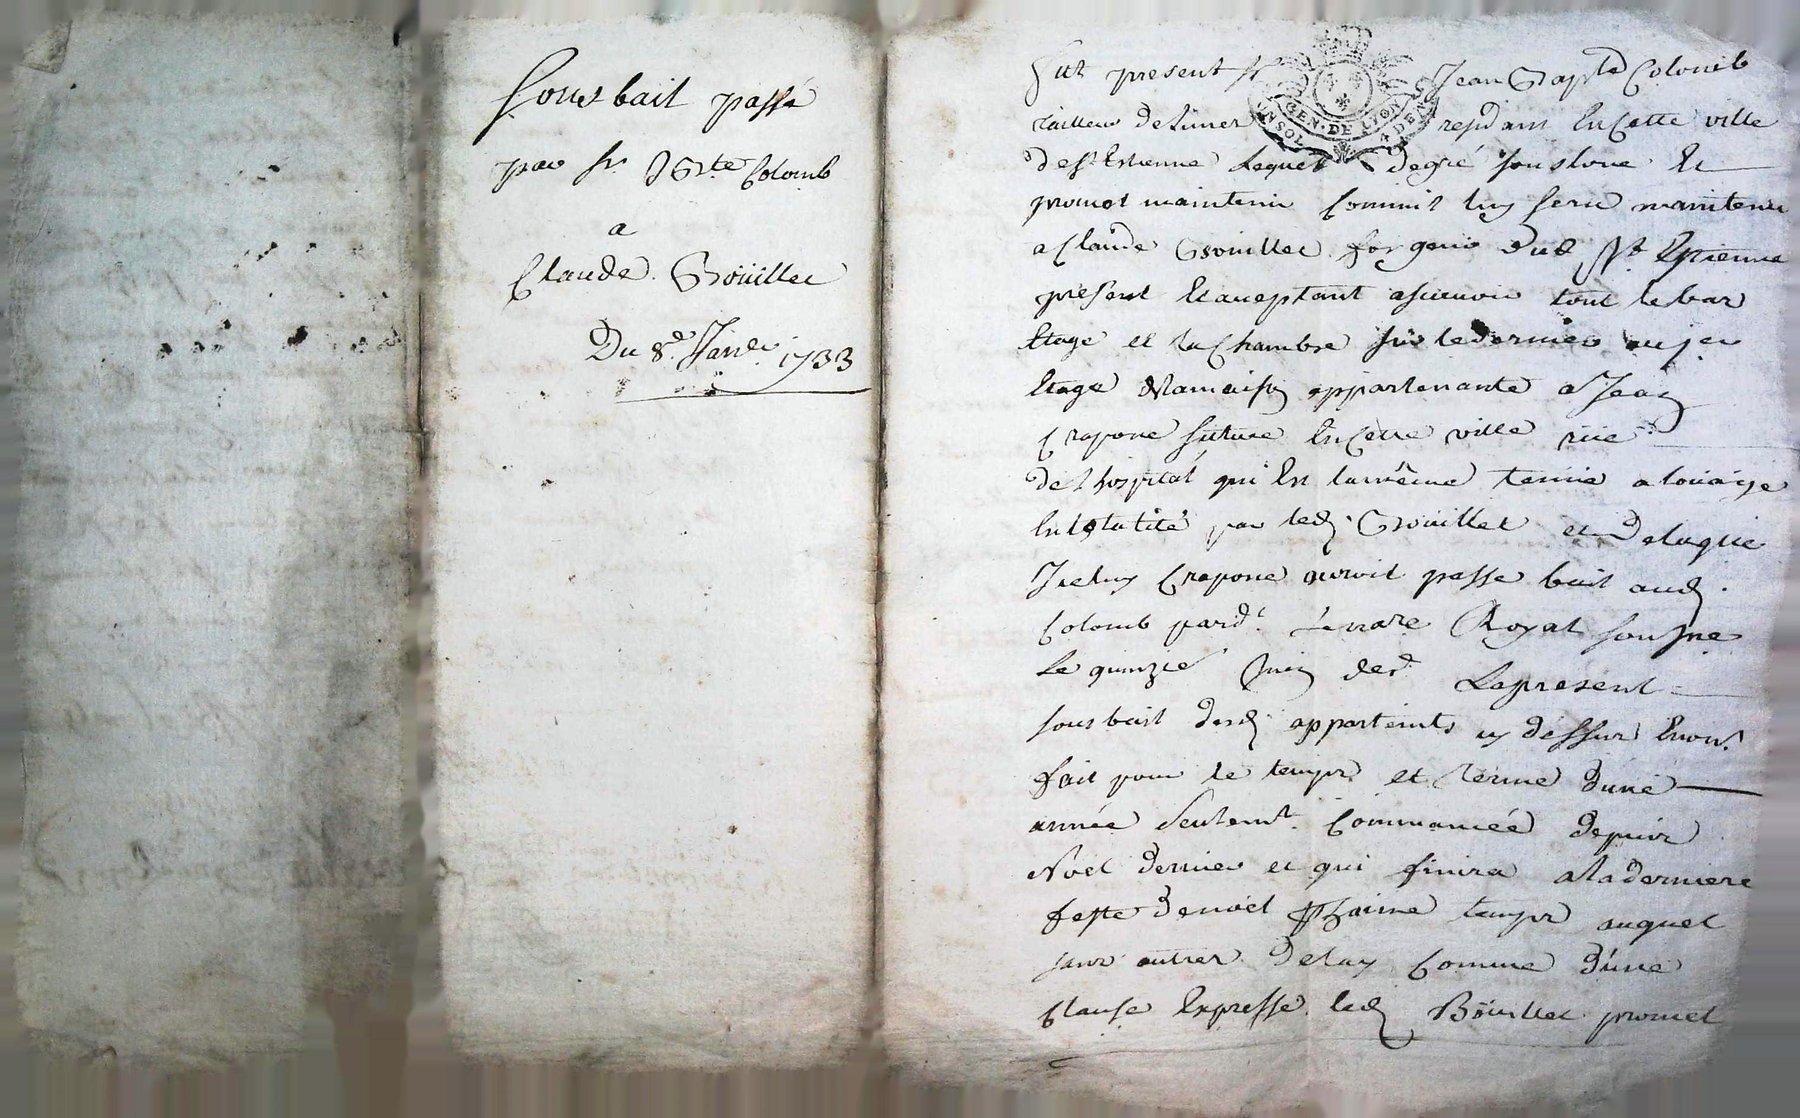 Sousbail passé
par Sr JBte Colomb
a
Claude Boüillet
Du 8e Janer 1733
Fut present Sr Jean Bapte Colomb
tailleur de limes residant en cette ville
de St Estienne lequel de gré souslove et
promet maintenir comme luy sera maintenu
a Claude Bouillet forgeur dud St Estienne
present et acceptant asçavoir tout le bas
Etage et la chambre sur le dernier
Etage de la maison appartenante a Jean
Crapone située en cette ville rüe
de l'hospital qui est la même tenüe a loüaige
en totalité par led Boüillet et de laquelle
Iceluy Crapone auroit passé bail aud
Colomb pardt le nore Royal sousne
le quinzie Juin der Le present
sousbail desd appartemts cy dessus
fait pour le temps et terme d'une
année seulemt commancée depuis
Noël dernier et qui finira a la derniere
feste de noël prochaine temps auquel
sans autres delay comme d'une
clause expresse led Boüillet promet
GEN. DE LYON